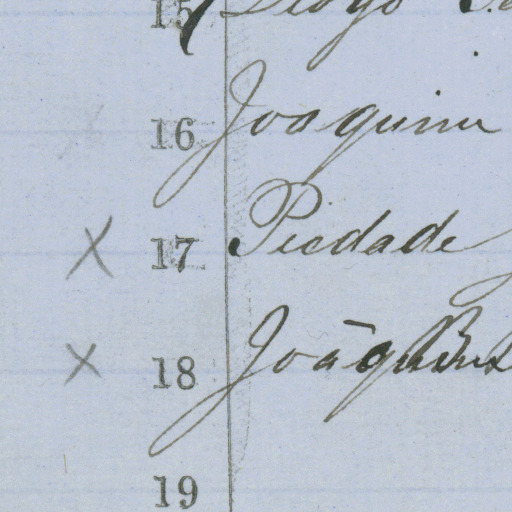 15 Diogo
16 Joaquim
X 17 Piedade
X 18 João
19